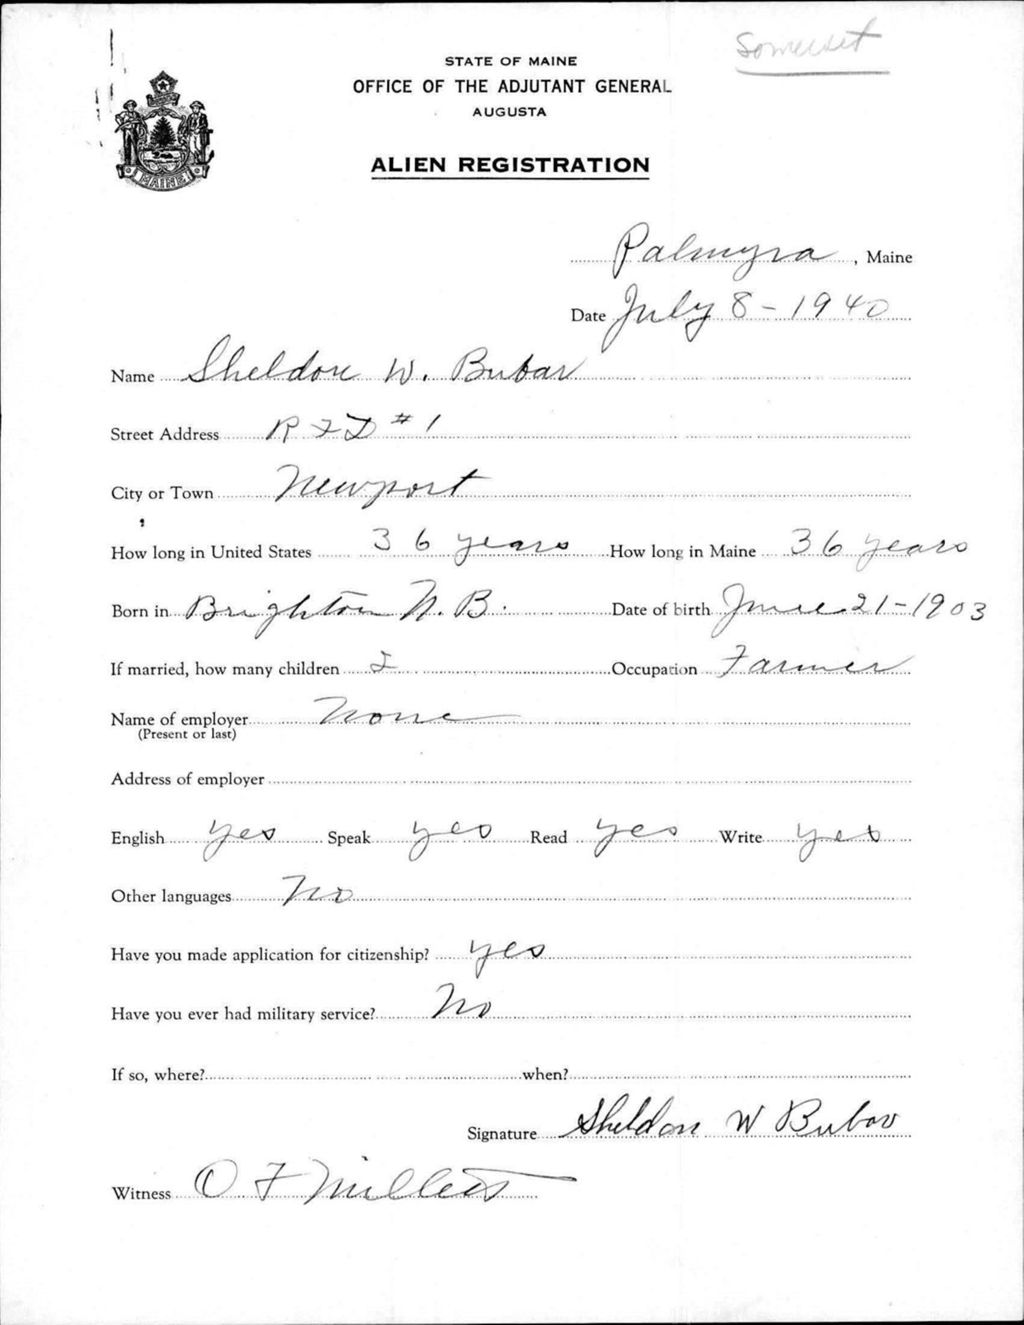 Somerset
STATE OF MAINE
OFFICE OF THE ADJUTANT GENERAL
AUGUSTA
MAINE
ALIEN REGISTRATION
Palmyra, Maine
Date July 8 - 1940
Name Sheldon W. Bubar
Street Address R F D #1
City or Town Newport
How long in United States 36 years How long in Maine 36 years
Born in Brighton N. B. Date of birth June 21 - 1903
If married, how many children 2 Occupation Farmer
Name of employer None
(Present or last)
Address of employer
English yes Speak yes Read yes Write yes
Other languages No
Have you made application for citizenship? yes
Have you ever had military service? No
If so, where? when?
Signature Sheldon W Bubar
Witness O F Millett